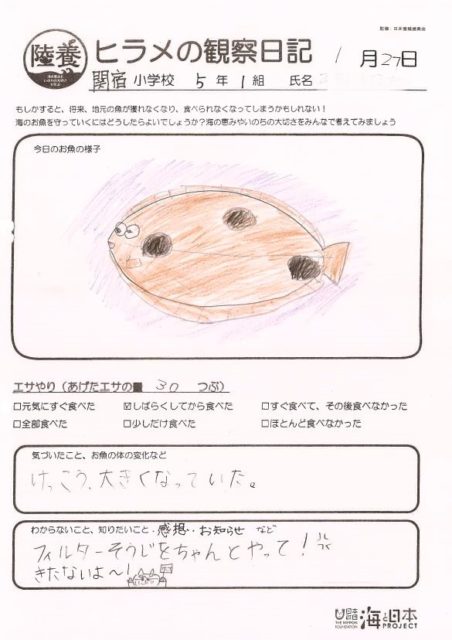 陸養
ヒラメの観察日記 1月27日
関宿小学校 5年1組 氏名
もしかすると、将来、地元の魚が獲れなくなり、食べられなくなってしまうかもしれない！
海のお魚を守っていくにはどうしたらよいでしょうか？海の恵みやいのちの大切さをみんなで考えてみましょう
今日のお魚の様子
エサやり（あげたエサの■ 30 つぶ）
□元気にすぐ食べた ☑しばらくしてから食べた □すぐ食べて、その後食べなかった
□全部食べた □少しだけ食べた □ほとんど食べなかった
気づいたこと、お魚の体の変化など
けっこう、大きくなっていた。
わからないこと、知りたいこと・感想・お知らせ など
フィルターそうじをちゃんとやって！
きたないよ〜！
日本財団
THE NIPPON FOUNDATION
海と日本
PROJECT